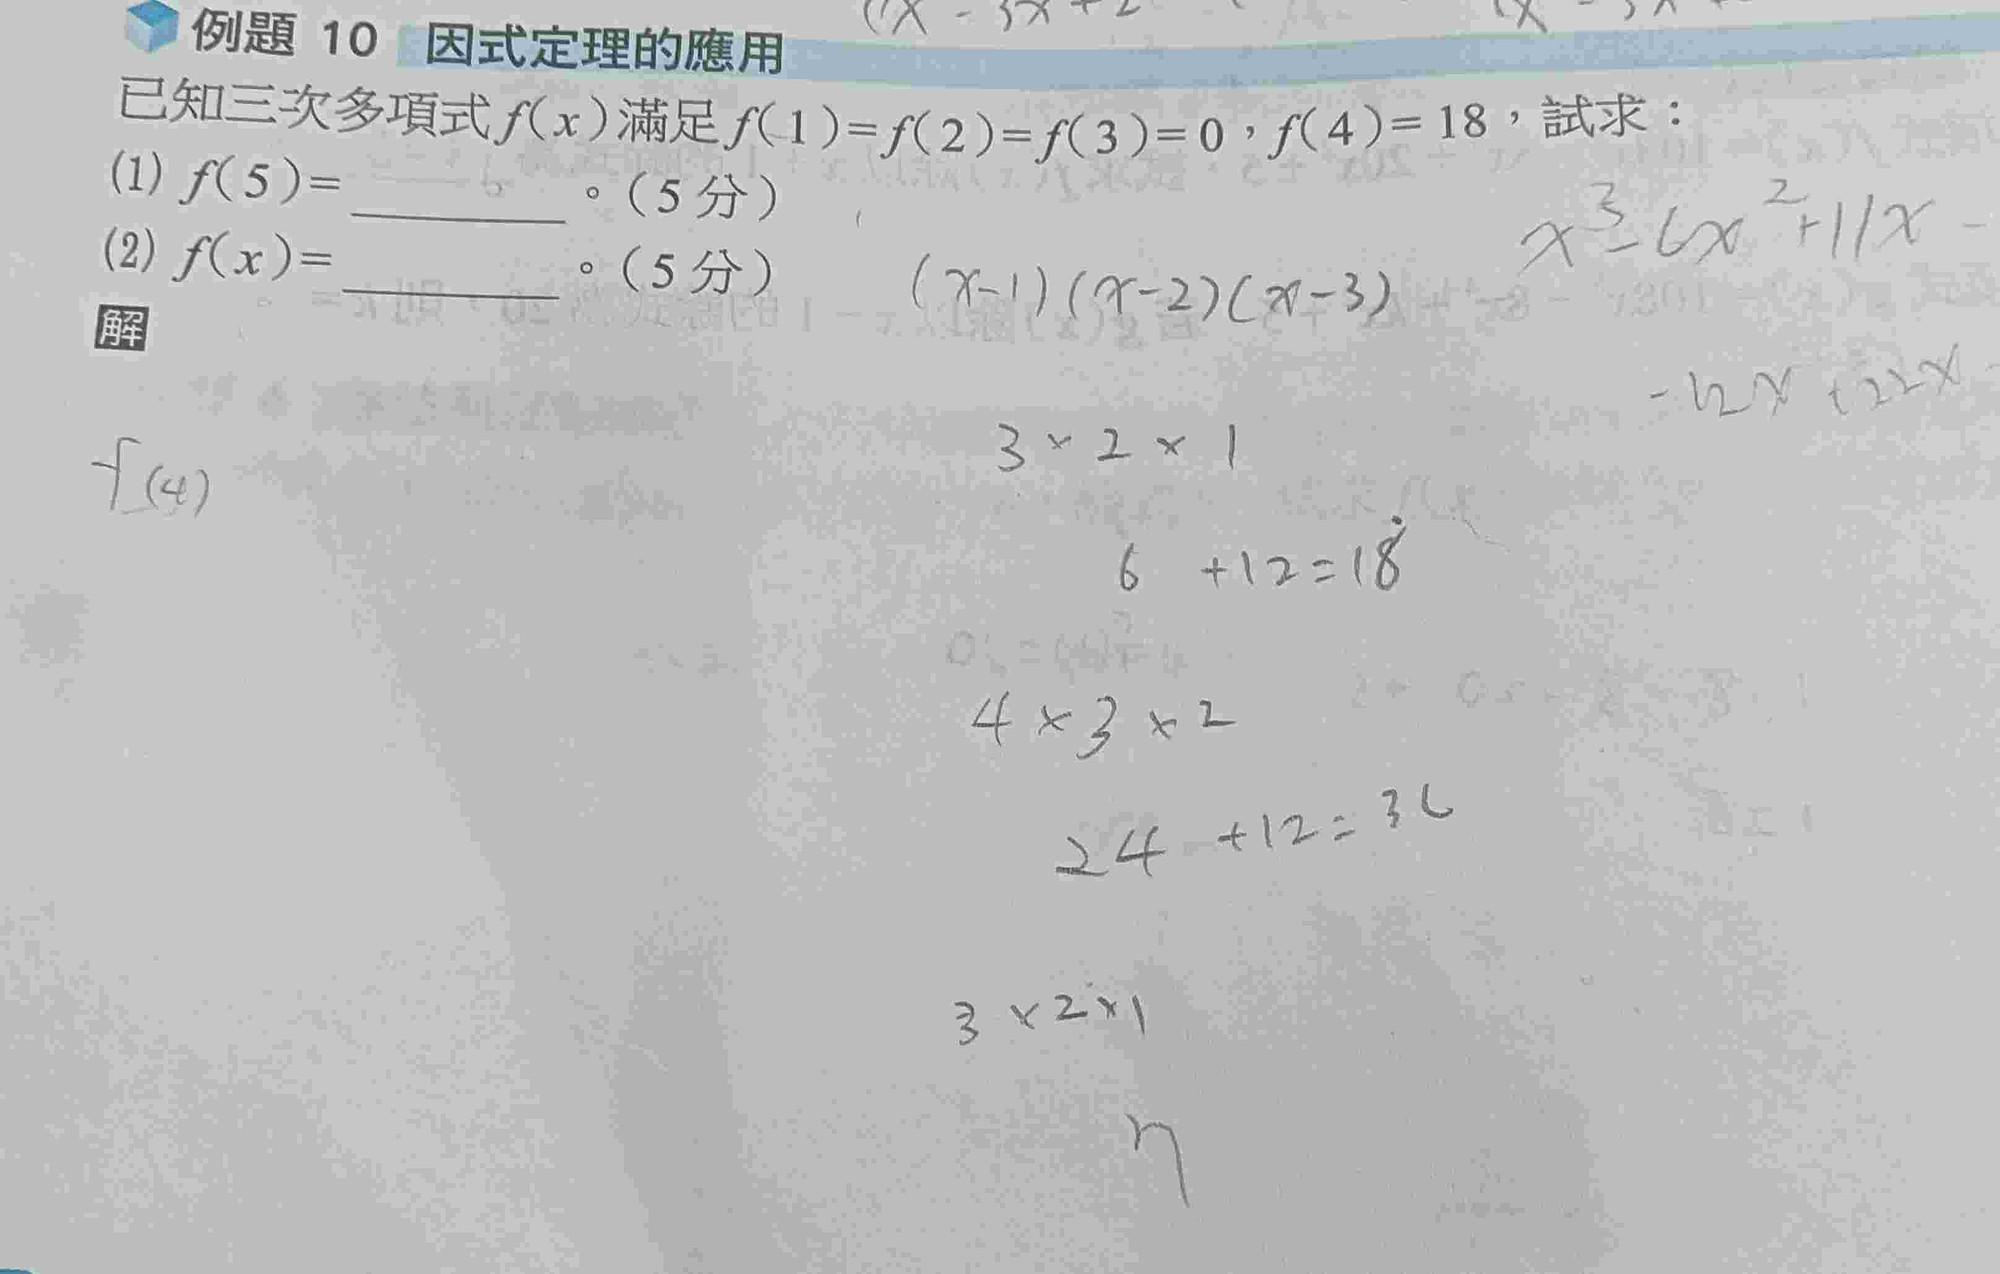 例題 10 因式定理的應用
已知三次多項式f(x)滿足f(1)=f(2)=f(3)=0，f(4)=18，試求：
(1) f(5)=________。(5分)
(2) f(x)=________。(5分)
解
x³-6x²+11x-
(x-1)(x-2)(x-3)
-12x+22x
f(4)
3×2×1
6 +12=18
4×3×2
24 +12=36
3×2×1